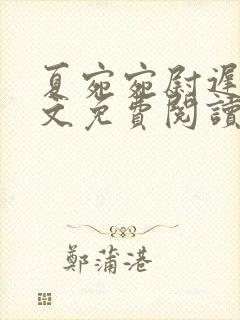 夏宛宛尉遲
文免費閱讀
鄭蒲港